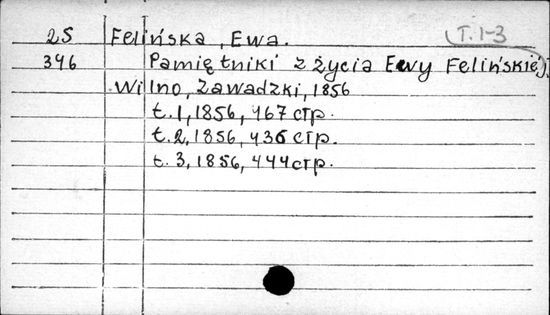 25 Felińska, Ewa. T. 1-3
396 Pamiętniki z życia Ewy Felińskiéj.
Wilno, Zawadzki, 1856
t. 1, 1856, 467 стр.
t. 2, 1856, 436 стр.
t. 3, 1856, 444 стр.